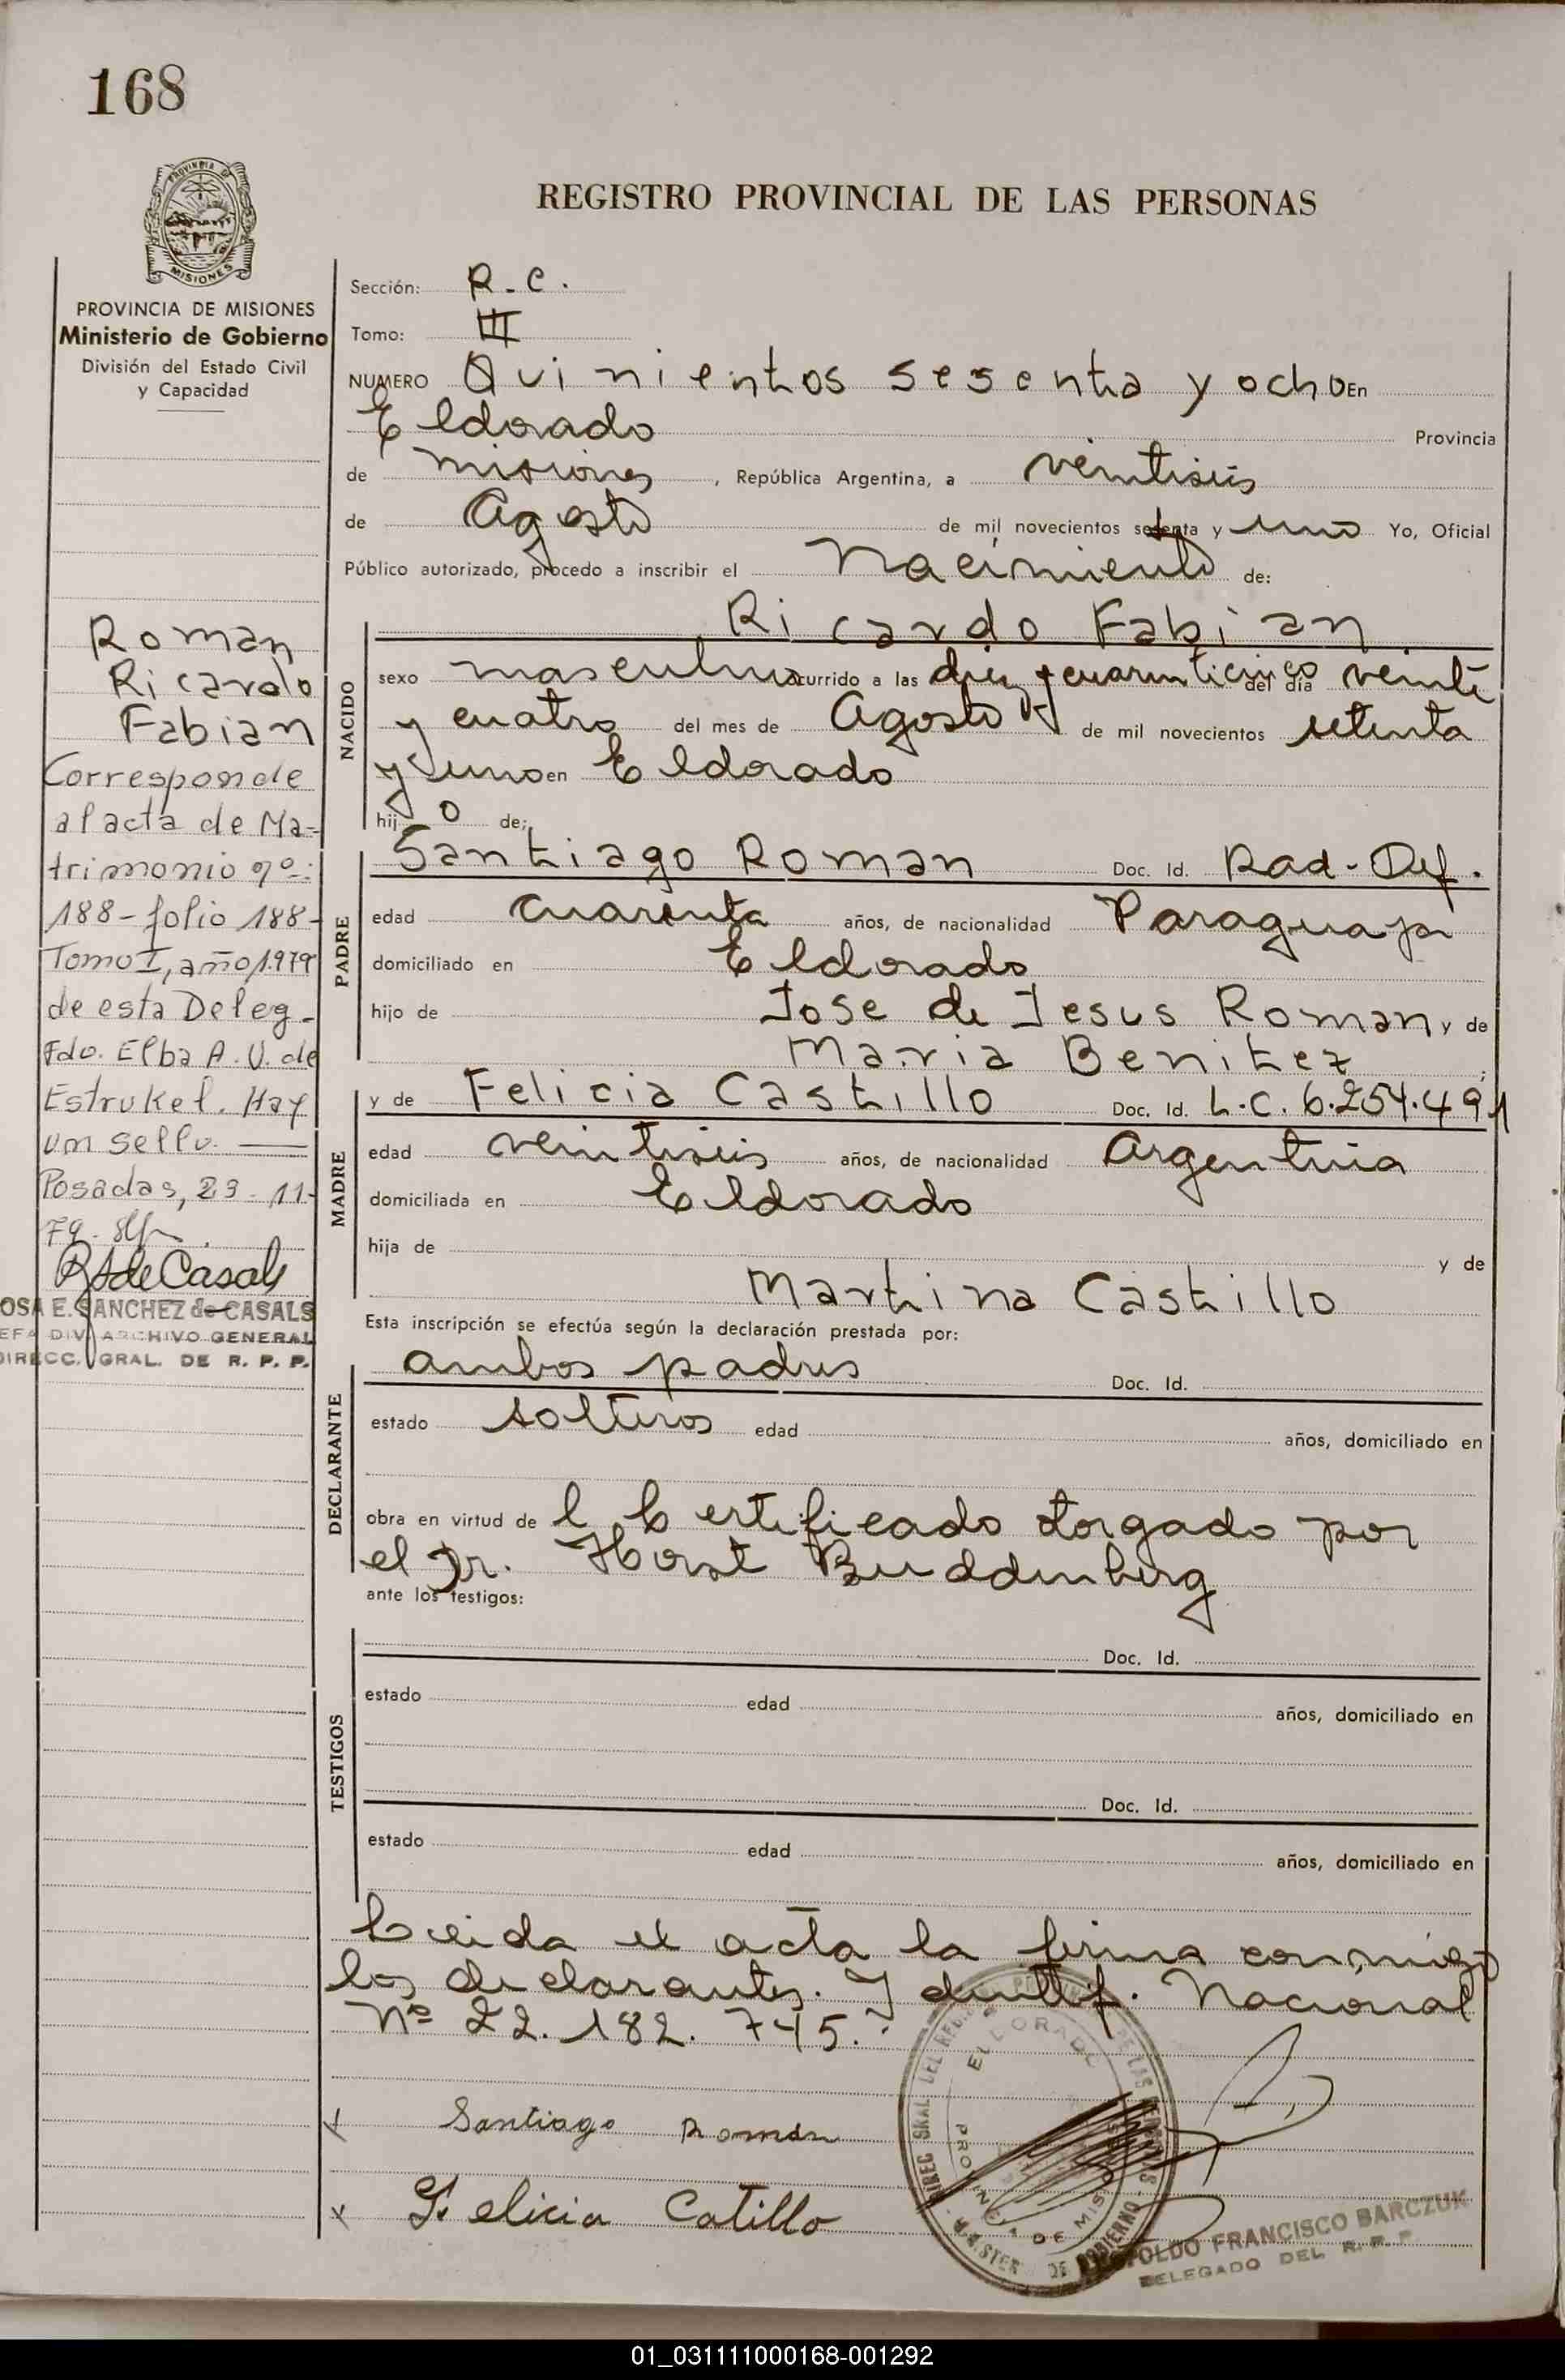 168
PROVINCIA DE
MISIONES
PROVINCIA DE MISIONES
Ministerio de Gobierno
División del Estado Civil
y Capacidad
Roman
Ricardo
Fabian
Corresponde
al acta de Ma=
trimonio nº:
188 - folio 188-
Tomo I, año 1.979
de esta Deleg-
Fdo. Elba A. V. de
Estrukel. Hay
un sello.
Posadas, 29-11-
79-
RSdeCasals
OSA E. SANCHEZ de CASALS
EFA DIV ARCHIVO GENERAL
DIRECC. GRAL. DE R. P. P.
REGISTRO PROVINCIAL DE LAS PERSONAS
Sección: R.C.
Tomo: III
NUMERO Quinientos sesenta y ocho En
Eldorado Provincia
de misiones, República Argentina, a veintiseis
de Agosto de mil novecientos setenta y uno Yo, Oficial
Público autorizado, procedo a inscribir el Nacimiento de:
NACIDO
Ricardo Fabian
sexo masculino ocurrido a las diez y cuarenticinco del día veinte
y cuatro del mes de Agosto de mil novecientos setenta
y uno en Eldorado
hij o de:
PADRE
Santiago Roman Doc. Id. Rad-Def.
edad cuarenta años, de nacionalidad Paraguaya
domiciliado en Eldorado
hijo de Jose de Jesus Roman y de
Maria Benitez
MADRE
y de Felicia Castillo Doc. Id. L.C. 6.254.491
edad veintiseis años, de nacionalidad Argentina
domiciliada en Eldorado
hija de y de
Martina Castillo
Esta inscripción se efectúa según la declaración prestada por:
DECLARANTE
ambos padres Doc. Id.
estado solteros edad años, domiciliado en
obra en virtud de l Certificado otorgado por
el Dr. Horst Buddenberg
ante los testigos:
TESTIGOS
Doc. Id.
estado edad años, domiciliado en
Doc. Id.
estado edad años, domiciliado en
Leida el acta la firma conmigo
los declarantes. Y Nacional
Nº 22.182.745.
x Santiago Roman
x Felicia Catillo
ELDORADO
PROVINCIA DE MISIONES
LEOPOLDO FRANCISCO BARCZUK
DELEGADO DEL R. P. P.
01_031111000168-001292